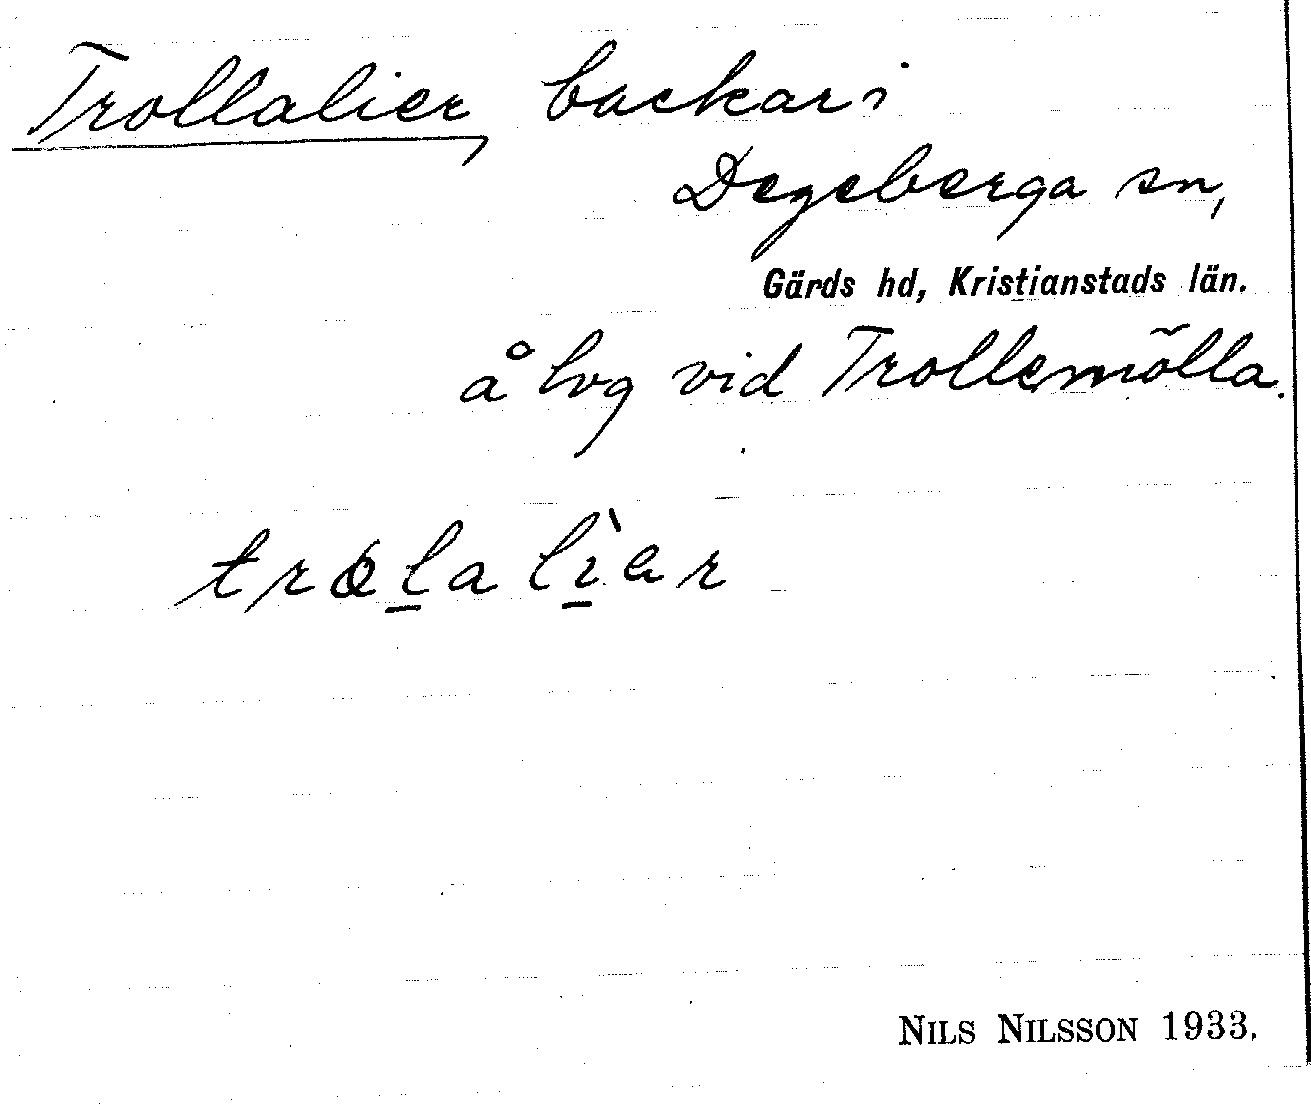 Trollalier, backar i
Degeberga sn,
Gärds hd, Kristianstads län.
å hvg vid Trollemölla.
trola lìar
NILS NILSSON 1933.